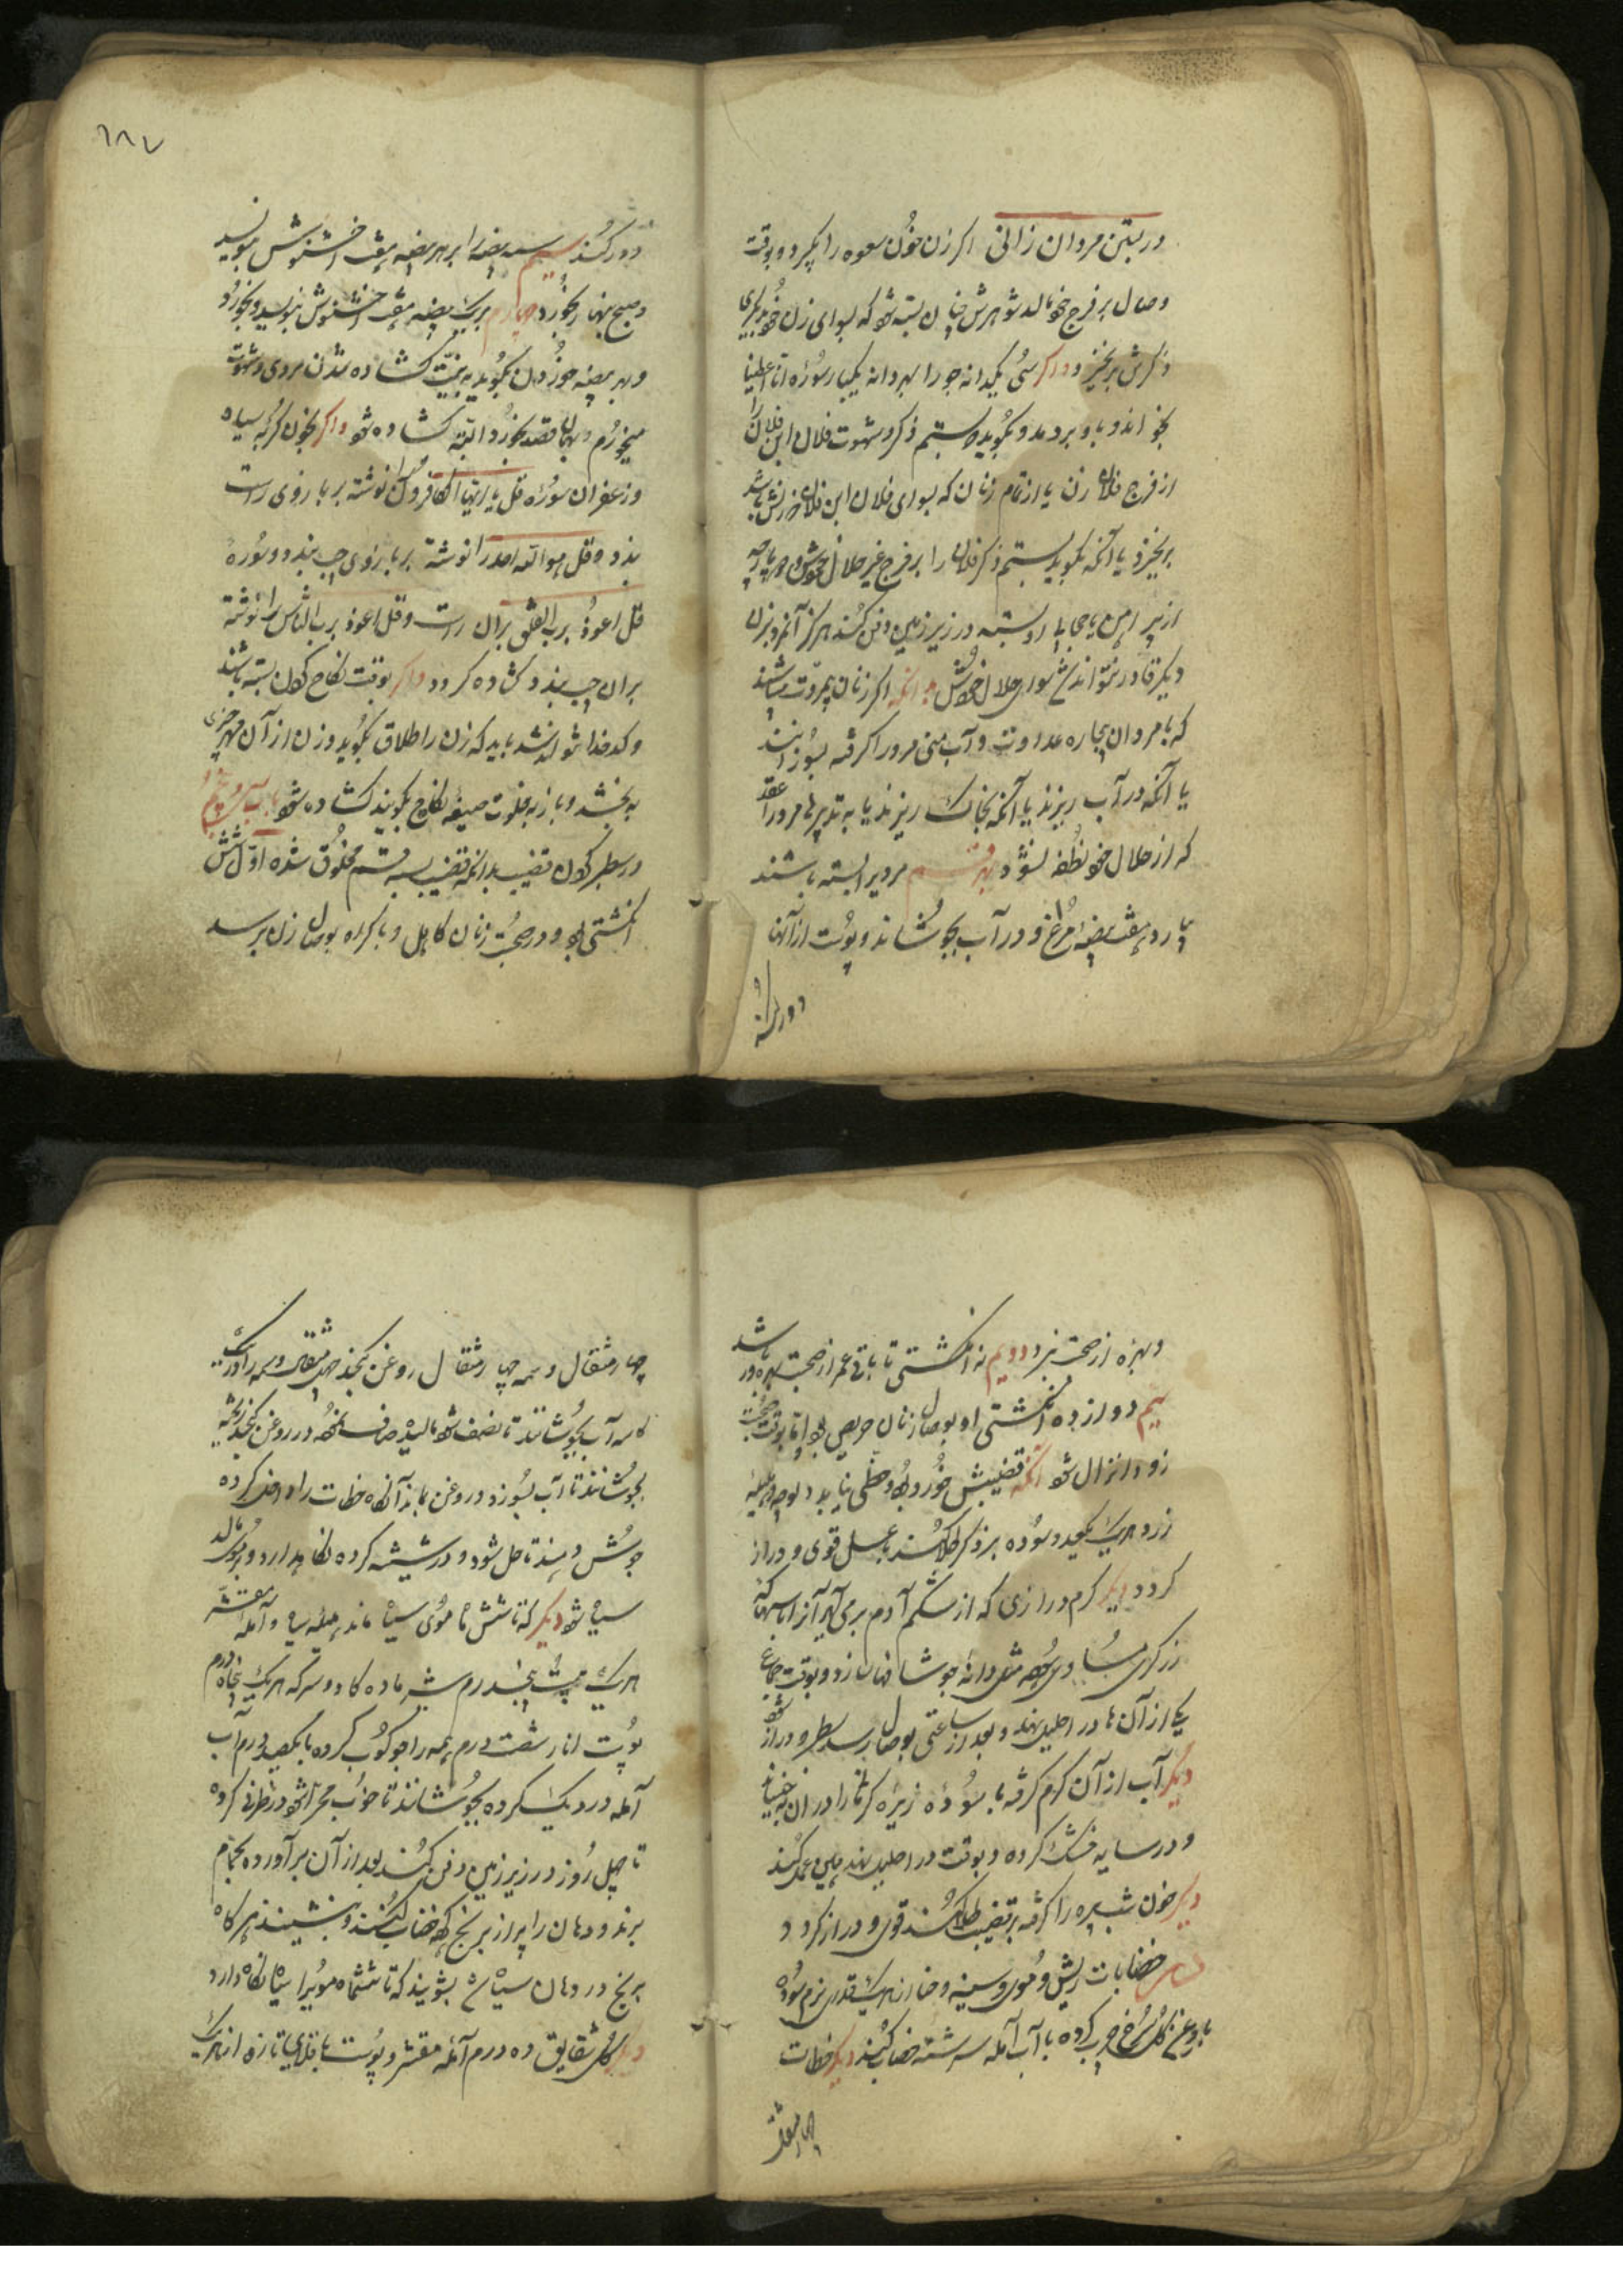 در بستن مردان زانی اکر زن خون سعوه را بکیرد و بوقت
وصال بر فرج خود مالد شوهرش چنان بسته شود که بسوای زن خود بدیکری
ذکرش برنخیزد و اکر سی یکدانه جو را بهر دانه یکبار سوره انا اعطینا
بخواند و باو بردمد و بکوید بستم ذکر و شهوت فلان ابن فلان را
از فرج فلان زن یا از تمام زنان که بسوای فلان ابن فلان زنش باشد
برنخیزد یا آنکه بکوید بستم ذکر فلان را بر فرج غیر حلال خودش و پارچه
از پیراهن یا جای او بسته در زیر زمین دفن کنند هرکز آنمرد بزن
دیکر قادر نتواند شد سوای حلال خودش بدانکه اکر زنان بمروت باشند
که با مردان بیچاره عداوت و آب منی مرد را کرفته بسوزانند
یا آنکه در آب ریزند یا آنکه بخاک ریزند یا به تدبیرها مرد را عقد
که از حلال خود نطفه نشود بهر قسم مردیرا بسته باشند
بیارد هفت بیضه مرغ و در آب بجوشاند و پوست از آنها
دور کند
۱۸۷
دور کند سیم سه بیضه را بر هر بیضه هفت بنویسد
و صبح نهار بخورد چهارم بر یک بیضه هفت بنویسد و بخورد
و بهر بیضه خوردن بکوید به نیت کشاده شدن مردی و شهوت
میخورم و بهمان قصد بخورد البته کشاده شود و اکر بخون کربه سیاه
و زعفران سوره قل یا ایها الکافرون را نوشته بر بازوی راست
بندد و قل هو الله احد را نوشته بر بازوی چپ بندد و سوره
قل اعوذ برب الفلق بران راست و قل اعوذ برب الناس را نوشته
بران چپ بندد کشاده کردد و اکر بوقت نکاح کردن بسته باشند
و کدخدا نتواند شد باید که زن را طلاق بکوید و زن از آن مهر چیزی
به بخشد و باز به خلوت صیغه نکاح بکویند کشاده شود باب
در سطبر کردن قضیب بدانکه قضیب بسه قسم مخلوق شده اول شش
انکشتی بود و در صحبت زنان کاهل و باکراه بوصال زن برسد
و بهره از صحبت نبرد دویم نه انکشتی تا باقی عمر از صحبت بهره ور باشد
سیم دوازده انکشتی او بوصال زنان حریص بود اما بوقت صحبت
زود انزال شود آنکه قضیبش خورد بود و حظی نیابد هلیله
زرد هر یک بکیرد و سوده بر ذکر طلا کنند با عسل قوی و دراز
کردد دیکر کرم درازی که از شکم آدم برمی آید آنرا با سپند
یکی از آن ها در احلیل نهد و بعد از ساعتی بوصال رسد سطبر و دراز شود
دیکر آب از آن کرم کرفته با سوده زیره کرمانی را در ان خیسانده
و در سایه خشک کرده و بوقت در احلیل نهد همین عمل کند
دیکر خون شب پره را کرفته بر قضیب طلا کنند قوی و دراز کردد
خضابات ریش و موی وسمه و حنا از هر یک قدری نرم سوده
با روغن کل سرخ چرب کرده با آب آمله سرشته خضاب کنند دیکر خطات
چهار مثقال
چهار مثقال وسمه چهار مثقال روغن کنجد چهل مثقال وسمه را در یک
کاسه آب بجوشانند تا نصف شود مالیده صاف نموده در روغن کنجد ریخته
بجوشانند تا آب بسوزد و روغن بماند آنکاه خطات را داخل کرده
جوش دهند تا حل شود و در شیشه کرده نکاهدارد و بر موی مالد
سیاه شود دیکر که تا شش ماه موی سیاه ماند هلیله سیاه و آمله مقشر
هر یک بیست پنجدرم شیر ماده کاو و سرکه هر یک پنجاه درم
پوست انار شصت درم همه را جوکوب کرده با یکصد درم آب
آمله در دیک کرده بجوشانند تا خوب مهرا شود در ظرفی کرده
تا چهل روز در زیر زمین دفن کنند بعد از آن برآورده بحمام
برند و دهان را پر از برنج کرده خضاب کنند و بنشینند هرکاه
برنج در دهان سیاه شود بشویند که تا ششماه مویرا سیاه نکاه دارد
دیکر کل شقایق ده درم آمله مقشر و پوست باقلای تازه از هر یک